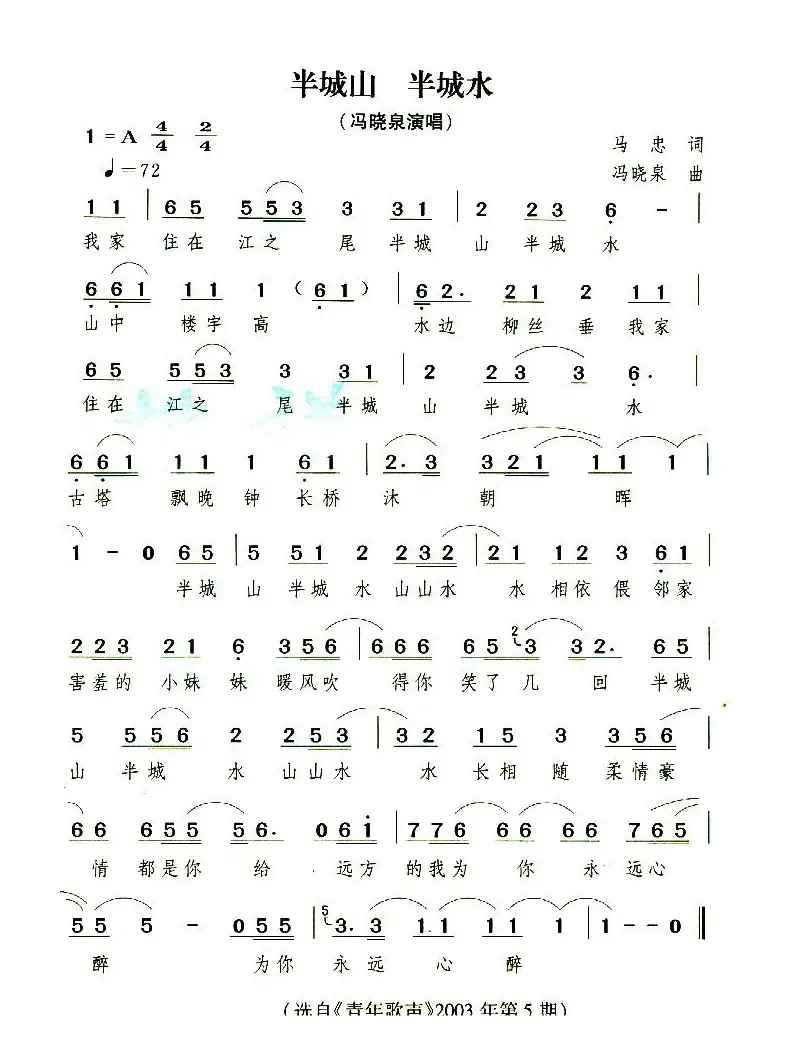 半城山　半城水
（冯晓泉演唱）
1=A 4/4 2/4
马　忠　词
♩=72
冯晓泉　曲
1 1 | 6 5 5 5 3 3 3 1 | 2 2 3 6 - |
我家 住在 江之 尾 半城 山 半城 水
6 6 1 1 1 1 （6 1） | 6 2. 2 1 2 1 1 |
山中 楼宇 高 水边 柳丝 垂 我家
6 5 5 5 3 3 3 1 | 2 2 3 3 6. |
住在 江之 尾 半城 山 半城 水
6 6 1 1 1 1 6 1 | 2. 3 3 2 1 1 1 1 |
古塔 飘晚 钟 长桥 沐 朝 晖
1 - 0 6 5 | 5 5 1 2 2 3 2 | 2 1 1 2 3 6 1 |
半城 山 半城 水 山山水 水 相依 偎 邻家
2 2 3 2 1 6 3 5 6 | 6 6 6 6 5 2 3 3 2. 6 5 |
害羞的 小妹 妹 暖风吹 得你 笑了 几 回 半城
5 5 5 6 2 2 5 3 | 3 2 1 5 3 3 5 6 |
山 半城 水 山山水 水 长相 随 柔情豪
6 6 6 5 5 5 6. 0 6 i | 7 7 6 6 6 6 6 7 6 5 |
情 都是你 给 远方 的我为 你 永 远心
5 5 5 - 0 5 5 | 5 3. 3 1 1 1 1 1 | 1 - - 0 ‖
醉 为你 永 远 心 醉
（选自《青年歌声》2003年第5期）